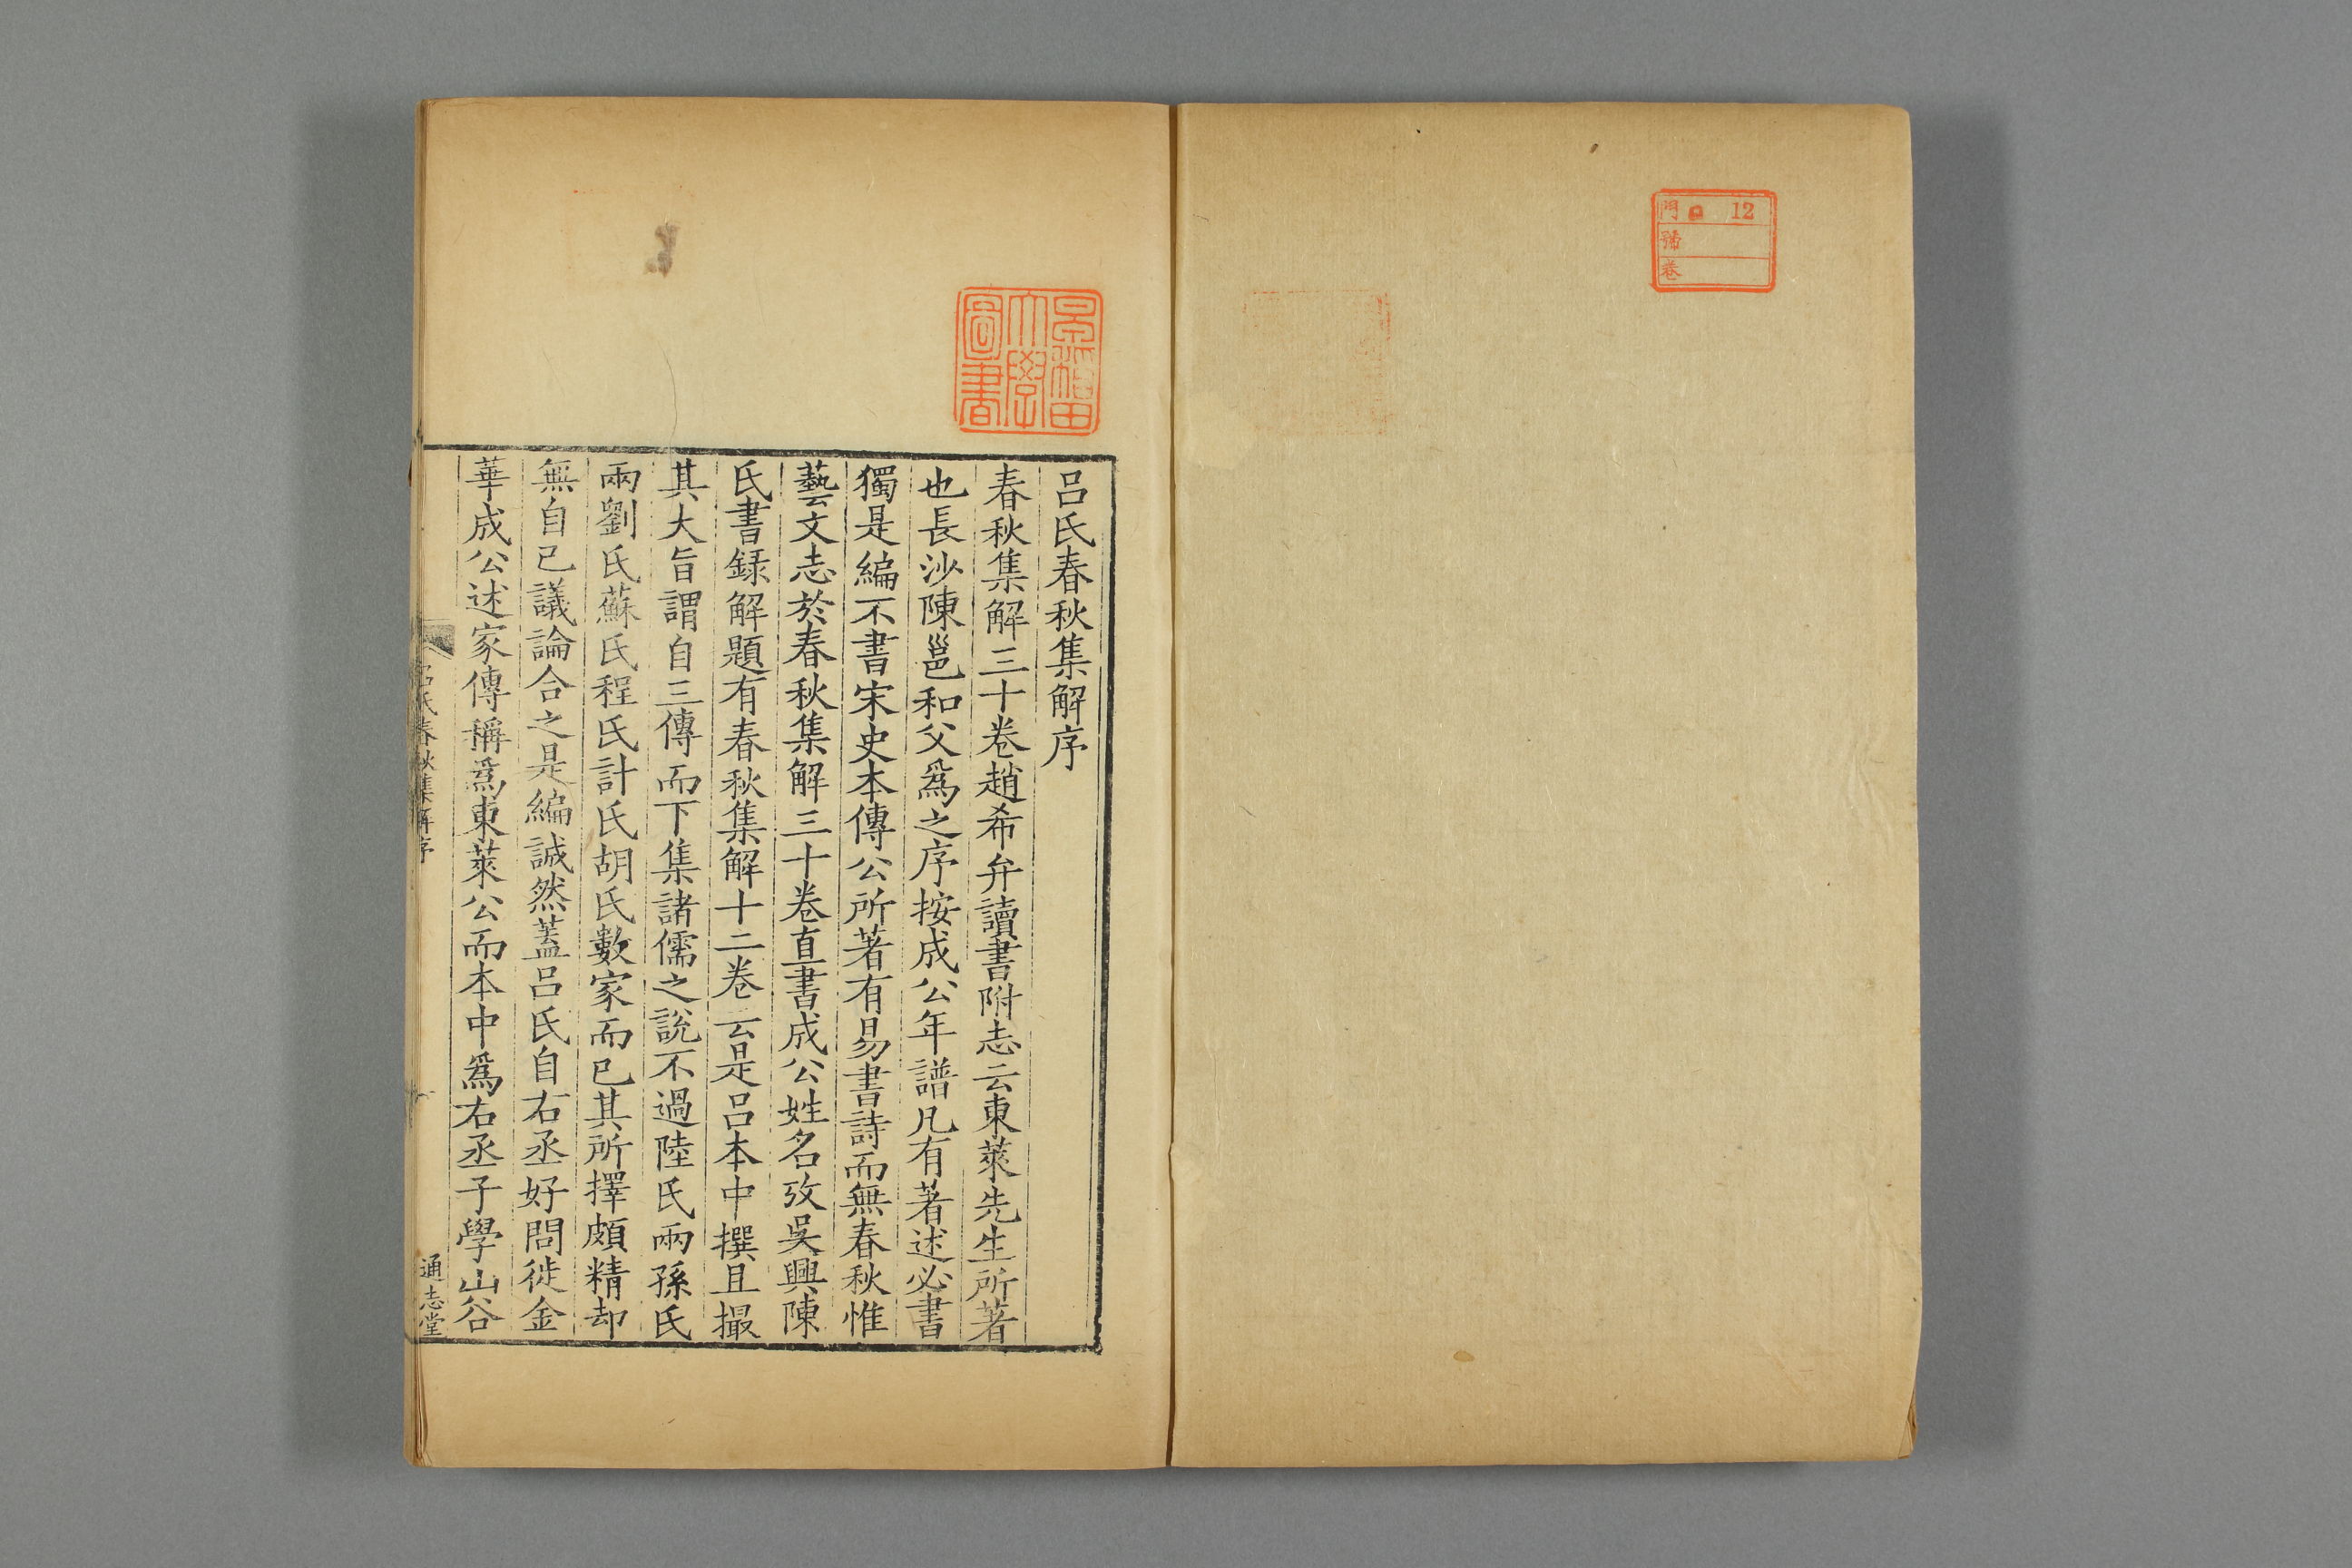 門 12
號
卷
早稲田
大學
圖書
呂氏春秋集解序
春秋集解三十卷趙希弁讀書附志云東萊先生所著
也長沙陳邕和父爲之序按成公年譜凡有著述必書
獨是編不書宋史本傳公所著有易書詩而無春秋惟
藝文志於春秋集解三十卷直書成公姓名攷吳興陳
氏書録解題有春秋集解十二卷云是呂本中撰且撮
其大旨謂自三傳而下集諸儒之說不過陸氏兩孫氏
兩劉氏蘇氏程氏計氏胡氏數家而已其所擇頗精却
無自已議論合之是編誠然蓋呂氏自右丞好問徙金
華成公述家傳稱爲東萊公而本中爲右丞子學山谷
呂氏春秋集解序
通志堂